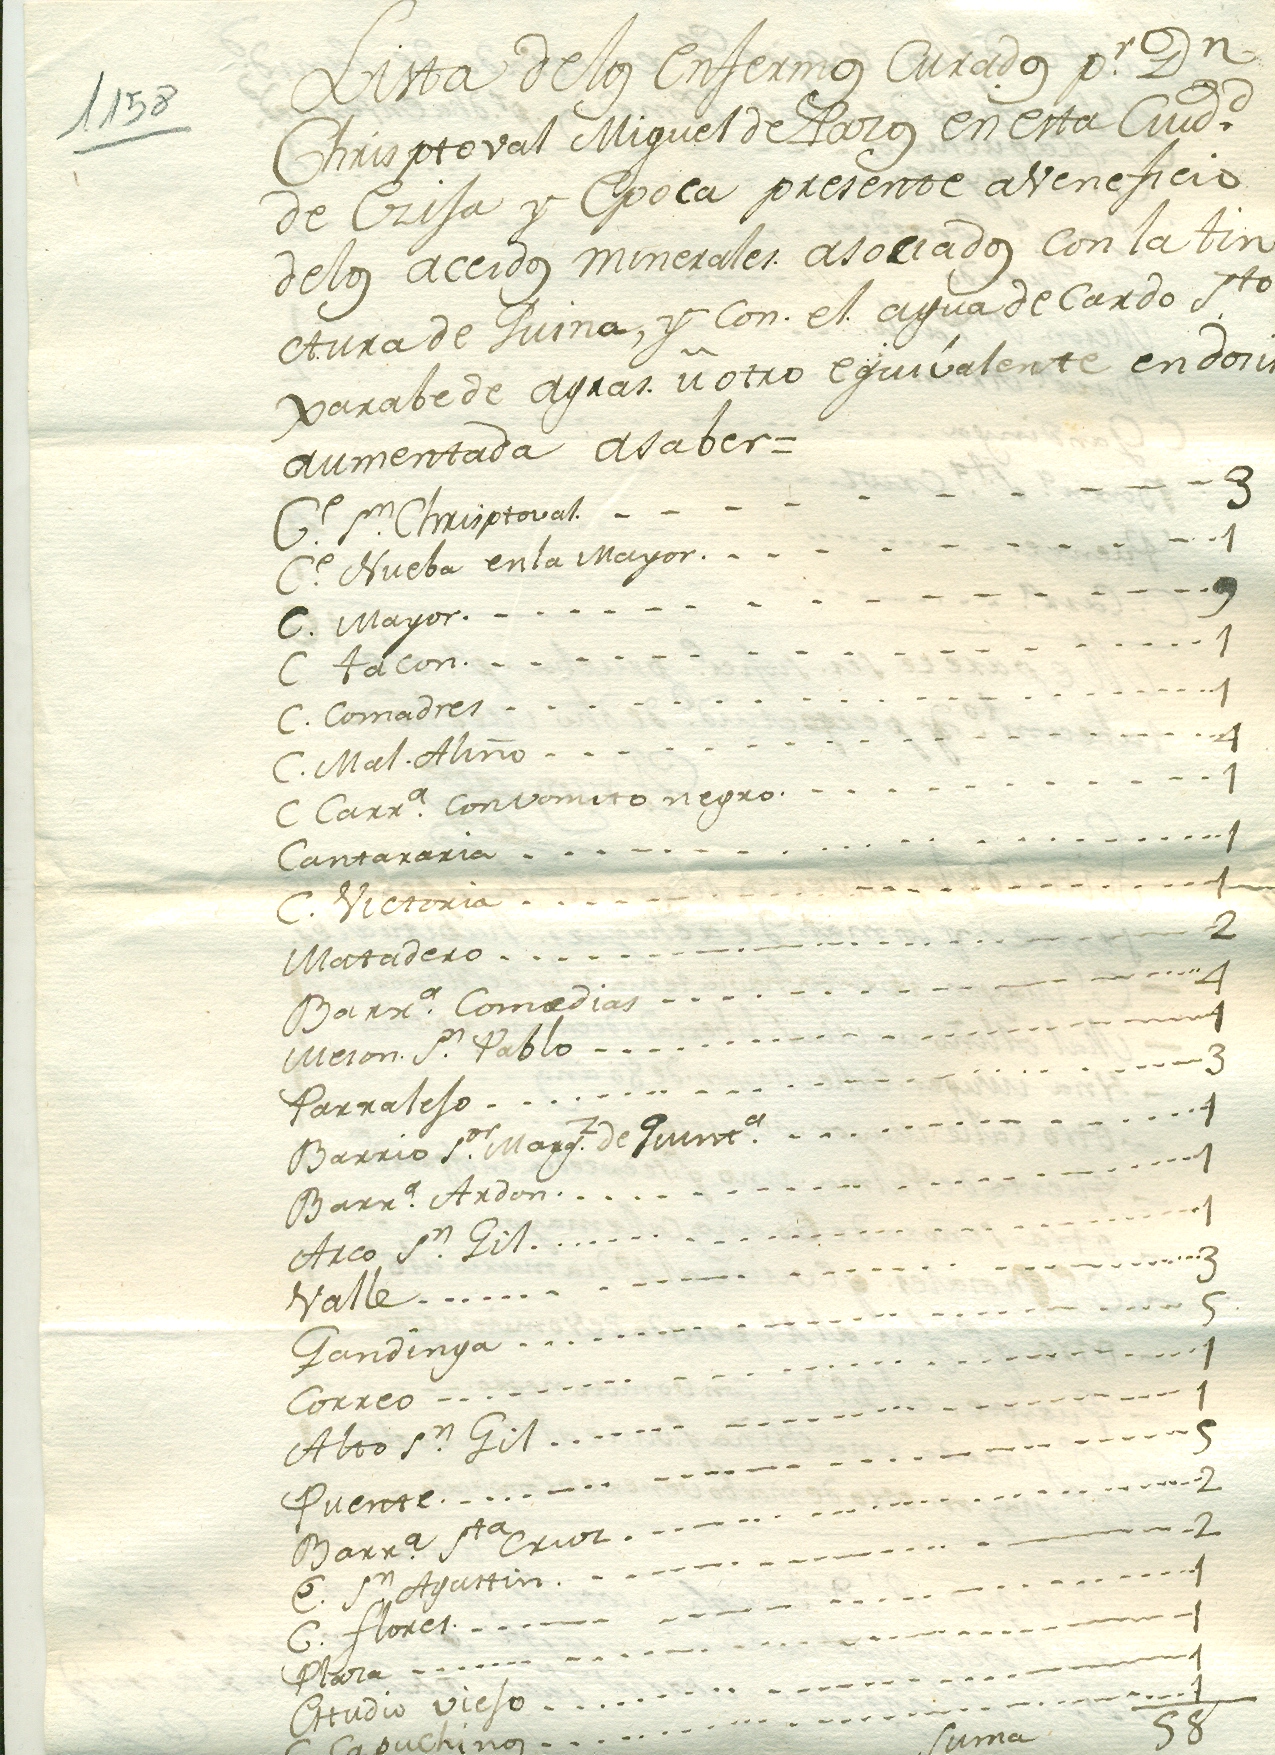 1158
Lista delos Enfermos Curados pr. Dn.
Chrisptoval Miguel de Pazos en esta Ciudd.
de Ezija y Epoca presente aVeneficio
delos aceidos minerales. asociados con la tin
ctura de Quina, y con. el. agua de Cardo Sto.
Xarabe de agras. ü otro equivalente en dosis
aumentada asaber=
Ce. Sn. Chrisptoval. 3
Ce. Nueba en la Mayor. 1
C. Mayor. 9
C tacon. 1
C. Comadres 1
C. Mal. Aliño 4
C Carra. con vomito negro. 1
Cantararia 1
C. Victoria 1
Matadero 2
Barra. Comedias 4
Meson. Sn. Pablo 1
Parralejo 3
Barrio Sor. Marqz. de Quinta. 1
Barra. Ardon. 1
Arco Sn. Gil. 1
Valle 3
Gandinga 5
Correo 1
Alto Sn. Gil 1
Puente. 5
Barra. Sta Cruz. 2
C. Sn. Agustin. 2
C. flores. 1
Plaza 1
Estudio viejo 1
C Capuchinos 1
Suma 58